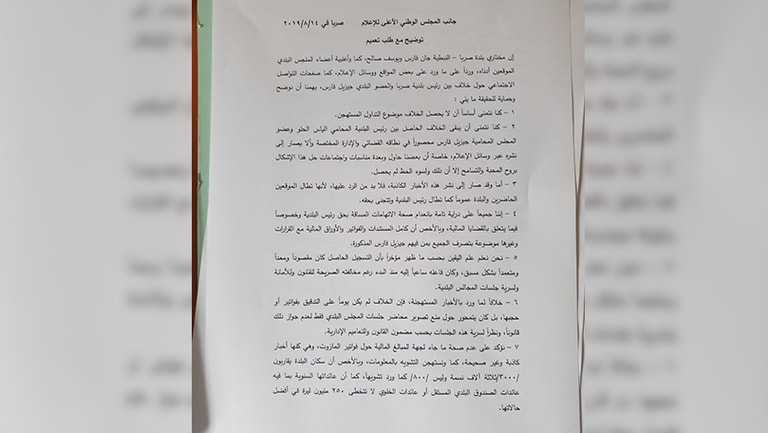 جانب المجلس الوطني الأعلى للإعلام صربا في ٢٠١٩/٨/١٤
توضيح مع طلب تعميم
إن مختاري بلدة صربا – النبطية جان فارس ويوسف صالح، كما وأغلبية أعضاء المجلس البلدي
الموقعين أدناه، ورداً على ما ورد على بعض المواقع ووسائل الإعلام، كما صفحات التواصل
الاجتماعي حول خلاف بين رئيس بلدية صربا والعضو البلدي جيزيل فارس، يهمنا أن نوضح
وحماية للحقيقة ما يلي :
١ – كنا نتمنى أساساً أن لا يحصل الخلاف موضوع التداول المستهجن.
٢ – كنا نتمنى أن يبقى الخلاف الحاصل بين رئيس البلدية المحامي الياس الحلو وعضو
المجلس المحامية جيزيل فارس محصوراً في نطاقه القضائي والإدارة المختصة وألا يصار إلى
نشره عبر وسائل الإعلام، خاصة أن بعضنا حاول وبعدة مناسبات واجتماعات حل هذا الإشكال
بروح المحبة والتسامح إلا أن ذلك ولسوء الحظ لم يحصل.
٣ – أما وقد صار إلى نشر هذه الأخبار الكاذبة، فلا بد من الرد عليها، لأنها تطال الموقعين
الحاضرين والبلدة عموماً كما تطال رئيس البلدية وتتجنى بحقه.
٤ – إننا جميعاً على دراية تامة بانعدام صحة الاتهامات المساقة بحق رئيس البلدية وخصوصاً
فيما يتعلق بالقضايا المالية، وبالأخص أن كامل المستندات والفواتير والأوراق المالية مع القرارات
وغيرها موضوعة بتصرف الجميع بمن فيهم جيزيل فارس المذكورة.
٥ – نحن نعلم علم اليقين بحسب ما ظهر مؤخراً بأن التسجيل الحاصل كان مقصوداً ومعداً
ومتعمداً بشكل مسبق، وكان فاعله ساعياً إليه منذ البدء رغم مخالفته الصريحة للقانون وللأمانة
ولسرية جلسات المجالس البلدية.
٦ – خلافاً لما ورد بالأخبار المستهجنة، فإن الخلاف لم يكن يوماً على التدقيق بفواتير أو
حجبها، بل كان يتمحور حول منع تصوير محاضر جلسات المجلس البلدي فقط لعدم جواز ذلك
قانوناً، ونظراً لسرية هذه الجلسات بحسب مضمون القانون والتعاميم الإدارية.
٧ – نؤكد على عدم صحة ما جاء لجهة المبالغ المالية حول فواتير المازوت، وهي كلها أخبار
كاذبة وغير صحيحة، كما ونستهجن التشويه بالمعلومات، وبالأخص أن سكان البلدة يقاربون
/٣٠٠٠/ثلاثة آلاف نسمة وليس /٨٠٠/ كما ورد تشويهاً، كما أن عائداتها السنوية بما فيه
عائدات الصندوق البلدي المستقل أو عائدات الخلوي لا تتخطى ٢٥٠ مليون ليرة في أفضل
حالاتها.